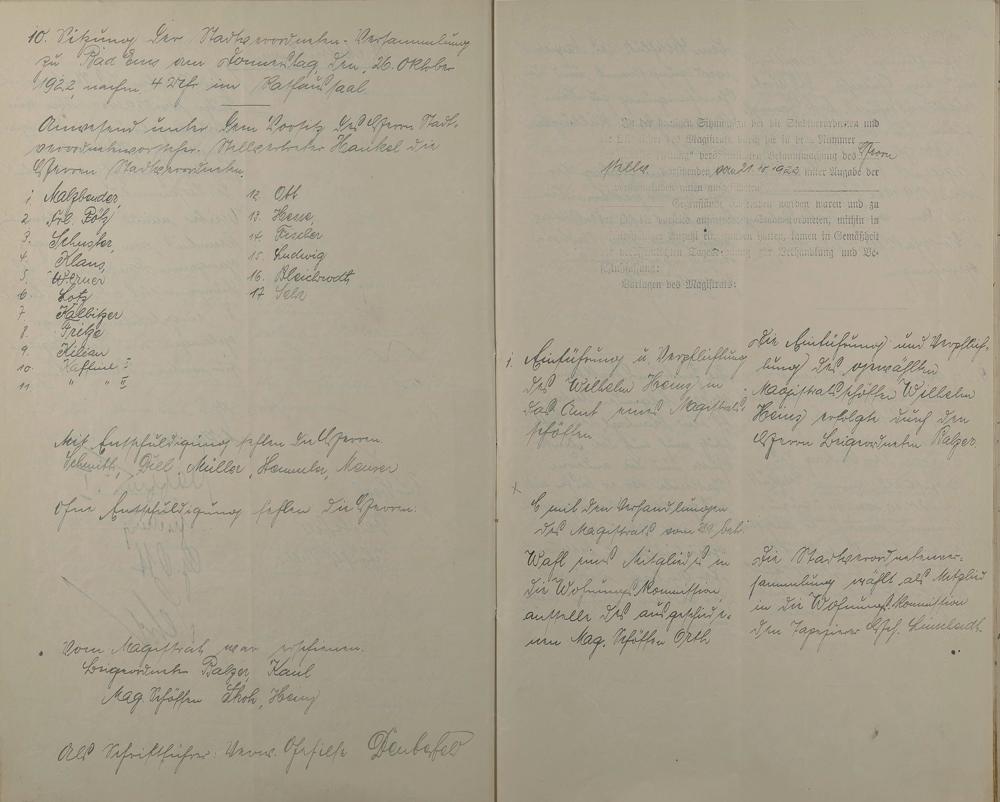 10. Sitzung der Stadtverordneten-Versammlung
zu Bad Ems am Donnerstag den, 26. Oktober
1922, nachm 4 Uhr im Rathaussaal.
Anwesend unter dem Vorsitz des Herrn Stadt-
verordnetenvorsteher. Stellvertreter Hankel die
Herren Stadtverordneten.
1 Malzbender,
2. Frl. Bötz
3. Schuster,
4. Klaus,
5. Werner
6 Lotz
7. Kalbitzer
8. Fritze
9. Kilian
10. Kaffine I
11. " " II
12. Ott
13. Heine,
14. Fischer
15. Ludwig
16. Bleichrodt,
17 Selz
Mit Entschuldigung fehlen die Herren.
Schmitt, Diel, Müller, Hemmler, Meurer
Ohne Entschuldigung fehlen die Herren:
Vom Magistrat war erschienen.
Beigeordneter Balzer, Kaul
Mag. Schöffen Thoh, Heinz
Als Schriftführer: Verw. Gehilfe
In der heutigen Sitzung, zu der die Stadtverordneten und
die Mitglieder des Magistrats durch die in der Nummer
Zeitung" veröffentlichte Bekanntmachung des Herrn
Stellv. Vorsitzenden, vom 21.10 1922 unter Angabe der
Verhandlung
Gegenstände eingeladen worden waren und zu
Stadtverordneten, mithin in
beschlußfähiger Anzahl eingefunden hatten, kamen in Gemäßheit
Tagesordnung zur Verhandlung und Be-
schlußfassung:
Vorlagen des Magistrats:
1. Einführung u Verpflichtung
des Wilhelm Heinz in
das Amt eines Magistrats-
schöffen
Die Einführung und Verpflich-
tung des gewählten
Magistratsschöffen Wilhelm
Heinz erfolgte durch den
Herrn Beigeordneten Balzer.
x
C mit den Verhandlungen
des Magistrats vom 29. betr.
Wahl eines Mitgliedes in
die Wohnungskommission,
anstelle des ausgeschiede-
nen Mag. Schöffen Orth
Die Stadtverordnetenver-
sammlung wählt als Mitglied
in die Wohnungskommission
den Tapezierer